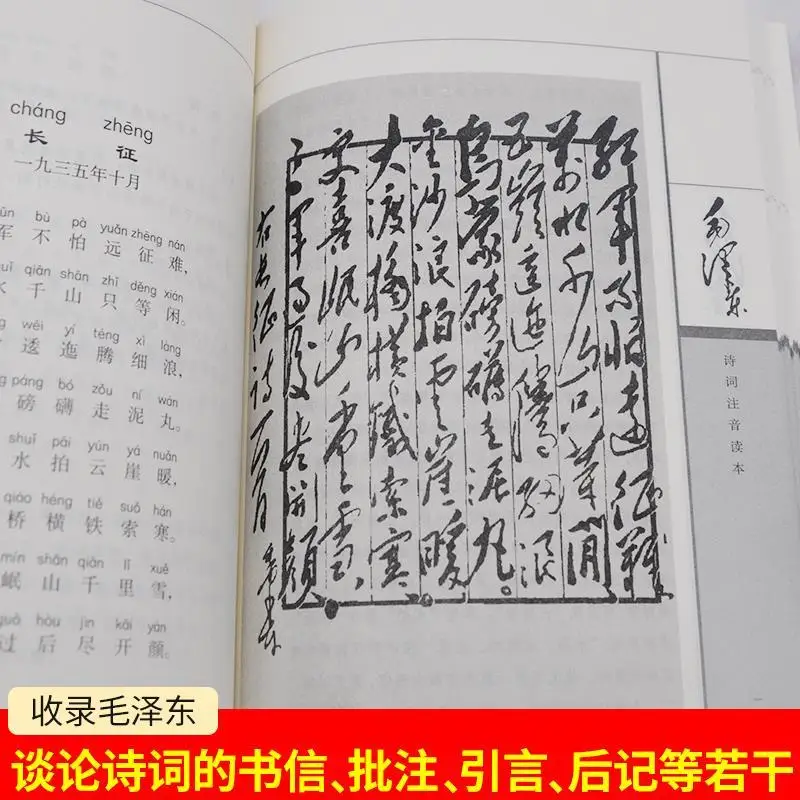 cháng zhēng
长 征
一九三五年十月
bù pà yuǎn zhēng nán
军 不 怕 远 征 难,
qiān shān zhǐ děng xián
水 千 山 只 等 闲。
wēi yí téng xì làng
逶 迤 腾 细 浪,
páng bó zǒu ní wán
磅 礴 走 泥 丸。
shuǐ pāi yún yá nuǎn
水 拍 云 崖 暖,
qiáo héng tiě suǒ hán
桥 横 铁 索 寒。
mín shān qiān lǐ xuě
岷 山 千 里 雪,
guò hòu jìn kāi yán
过 后 尽 开 颜。
紅軍不怕遠征難
萬水千山只等閒
五嶺逶迤騰細浪
烏蒙磅礴走泥丸。
金沙浪拍雲崖暖
大渡橋橫鐵索寒
更喜岷山千里雪
三軍過後盡開顏
右長征詩一首 毛泽东
毛泽东
诗词注音读本
收录毛泽东
谈论诗词的书信、批注、引言、后记等若干